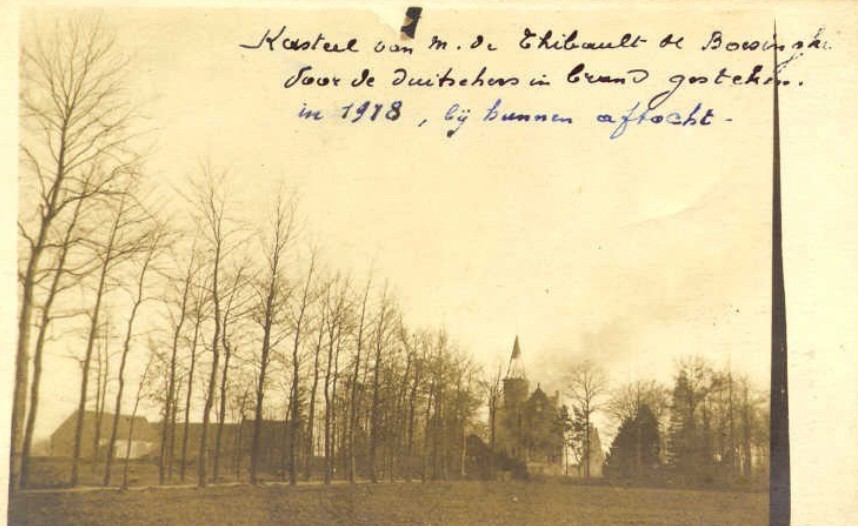 Kasteel van M. de Thibault de Boesinghe
door de duitschers in brand gesteken.
in 1918, bij hunnen aftocht -